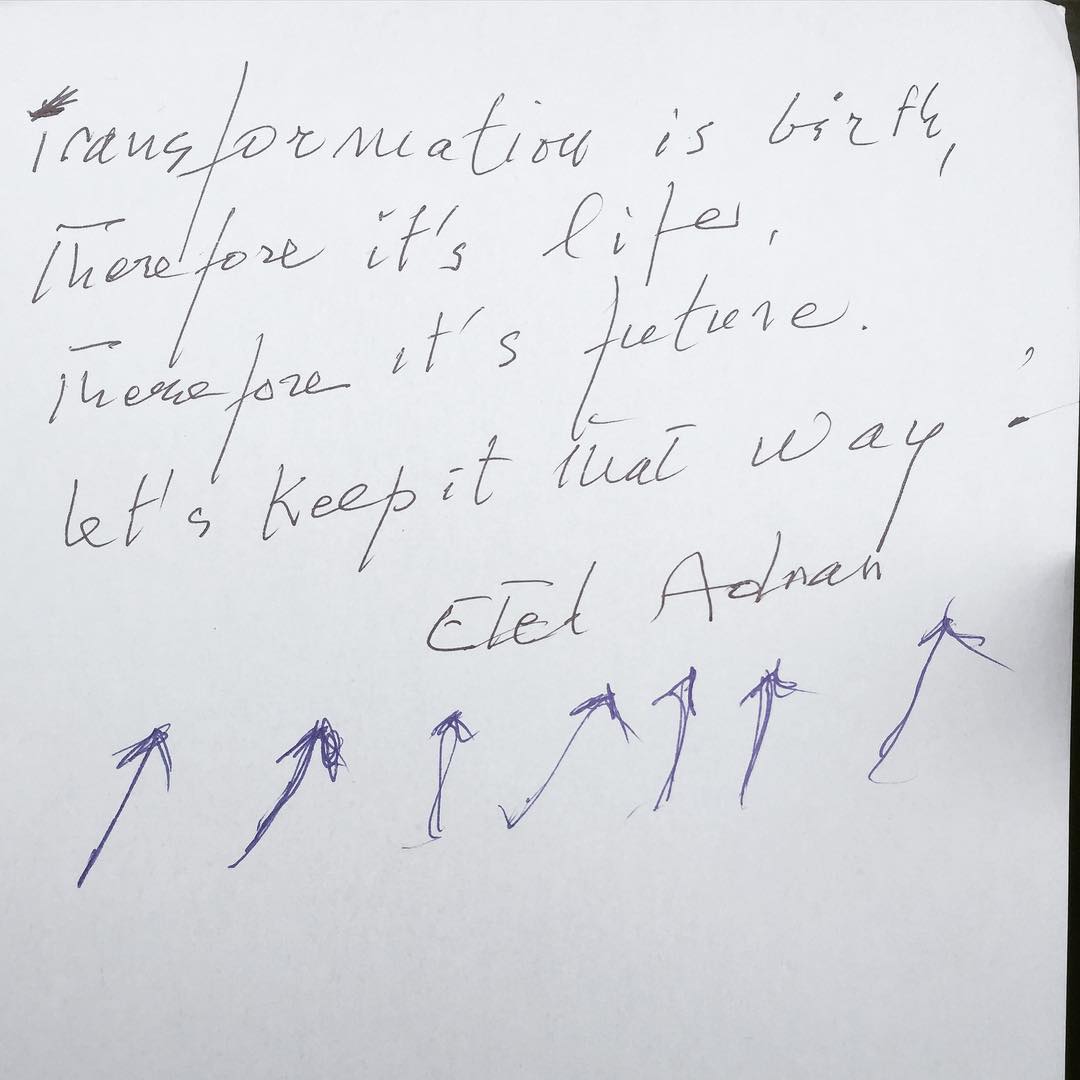 Transformation is birth,
Therefore it's life,
Therefore it's future.
Let's keep it that way !
Etel Adnan